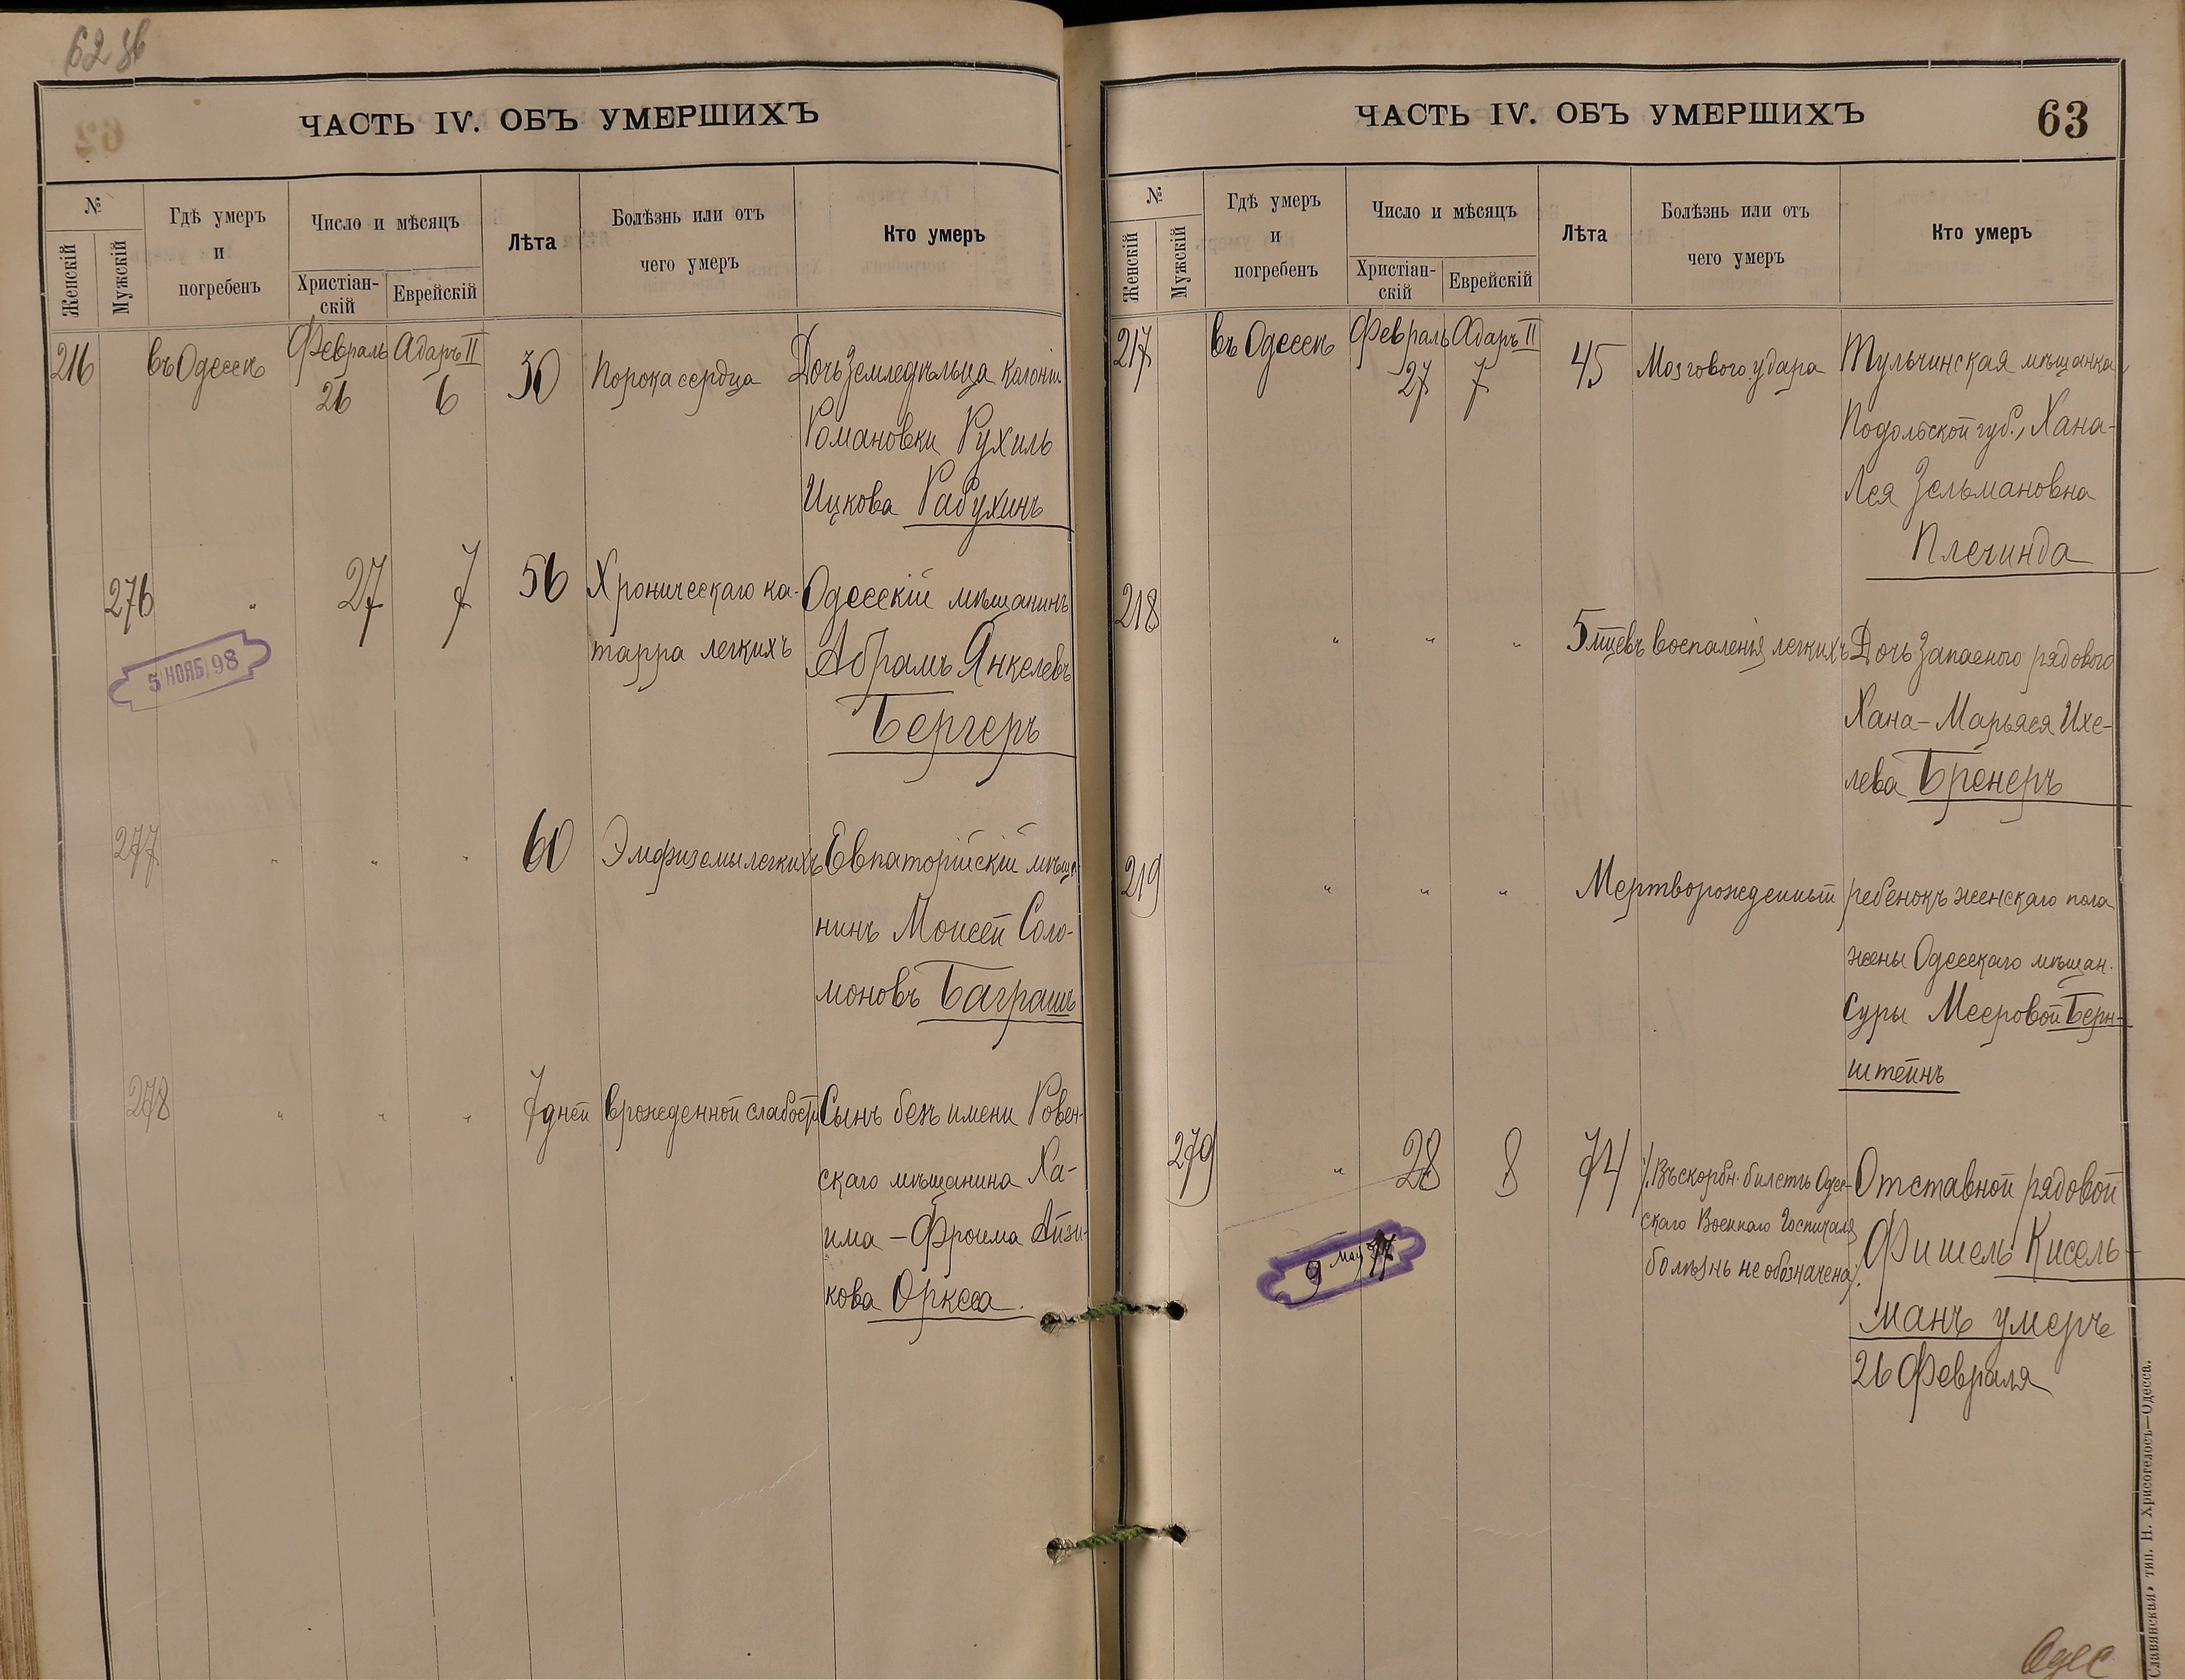 62 об
ЧАСТЬ IV. ОБЪ УМЕРШИХЪ
№
Женскій
Мужскій
Гдѣ умеръ
и
погребенъ
Число и мѣсяцъ
Христіан-
скій
Еврейскій
Лѣта
Болѣзнь или отъ
чего умеръ
Кто умеръ
216 въ Одессѣ Февраль 26 Адаръ II 6 30 Порока сердца Дочь земледѣльца колоніи
Романовки Рухиль
Ицкова Рабухинъ
276 " 27 7 56 Хроническаго ка- Одесскій мѣщанинъ
тарра легкихъ Абрамъ Янкелевъ
Бергеръ
5 НОЯБ 98
277 " " " 60 Эмфиземы легкихъ Евпаторійскій мѣща-
нинъ Моисей Соло-
моновъ Баграшъ
278 " " " 7 дней врожденной слабости Сынъ безъ имени Ровен-
скаго мѣщанина Ха-
има-Фроима Айзи-
кова Оркса.
ЧАСТЬ IV. ОБЪ УМЕРШИХЪ
63
№
Женскій
Мужскій
Гдѣ умеръ
и
погребенъ
Число и мѣсяцъ
Христіан-
скій
Еврейскій
Лѣта
Болѣзнь или отъ
чего умеръ
Кто умеръ
217 въ Одессѣ Февраль 27 Адаръ II 7 45 Мозгового удара Тульчинская мѣщанка
Подольской губ., Хана-
Лея Зельмановна
Плечинда
218 " " " 5 мцевъ воспаленія легкихъ Дочь запасного рядового
Хана-Марьяся Ихе-
лева Бренеръ
219 " " " Мертворожденный ребенокъ женскаго пола
жены Одесскаго мѣщан.
Суры Мееровой Берн-
штейнъ
279 " 28 8 74 /. Въ скорбн. билетѣ Одес- Отставной рядовой
скаго Военнаго Госпиталя Фишель Кисель-
болѣзнь не обозначена/. манъ умеръ
26 Февраля
9 Мая
Славянская» тип. Н. Хрисогелосъ—Одесса.
Одес